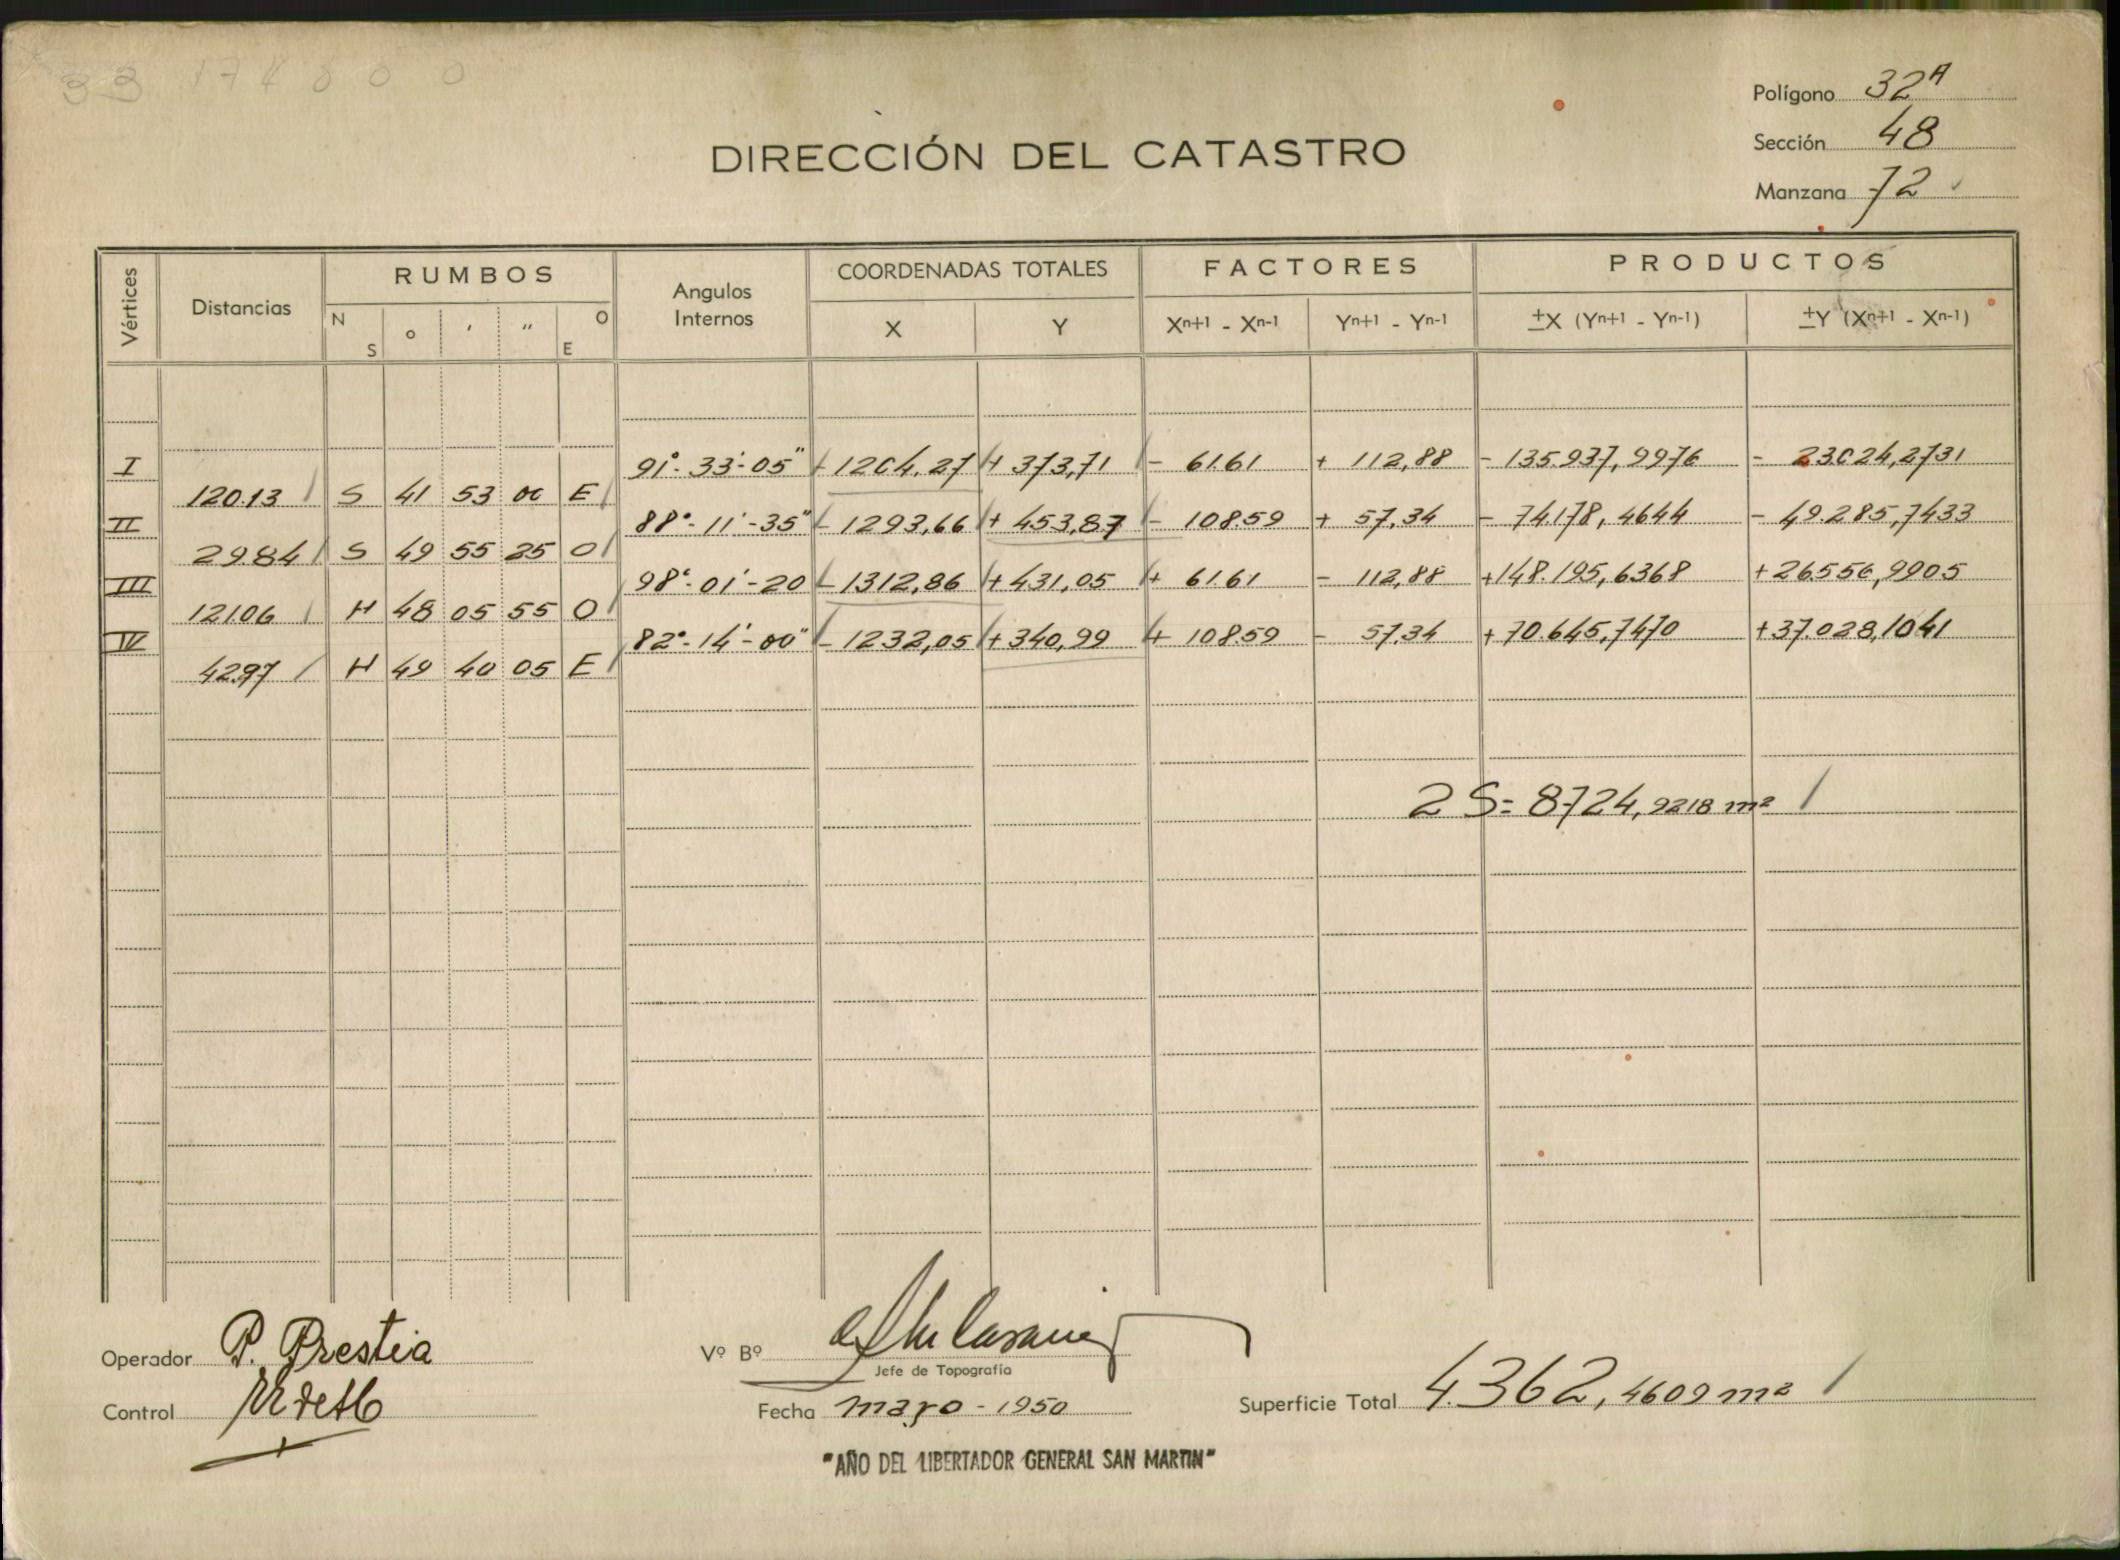 33 174800
Polígono 32A
Sección 48
Manzana 72
DIRECCIÓN DEL CATASTRO
Vértices Distancias RUMBOS Angulos Internos COORDENADAS TOTALES FACTORES PRODUCTOS
N S ° ′ ″ O E X Y Xn+1 - Xn-1 Yn+1 - Yn-1 ±X (Yn+1 - Yn-1) ±Y (Xn+1 - Xn-1)
I 91°-33'-05" + 1204,27 + 373,71 - 61.61 + 112,88 - 135.937,9976 - 23.024,2731
120.13 S 41 53 00 E
II 88°-11'-35" - 1293,66 + 453,87 - 108.59 + 57,34 - 74.178,4644 - 49.285,7433
29.84 S 49 55 25 O
III 98°-01'-20 - 1312,86 + 431,05 + 61.61 - 112,88 +148.195,6368 +26556,9905
121.06 N 48 05 55 O
IV 82°-14'-00" - 1232,05 + 340,99 + 108.59 - 57.34 +70.645,7470 +37.028,1041
42.97 N 49 40 05 E
2 S= 8724,9218 m²
Operador P. Prestia
Vº Bº
Jefe de Topografía
Control
Fecha mayo - 1950
Superficie Total 4.362,4609 m²
"AÑO DEL LIBERTADOR GENERAL SAN MARTIN"